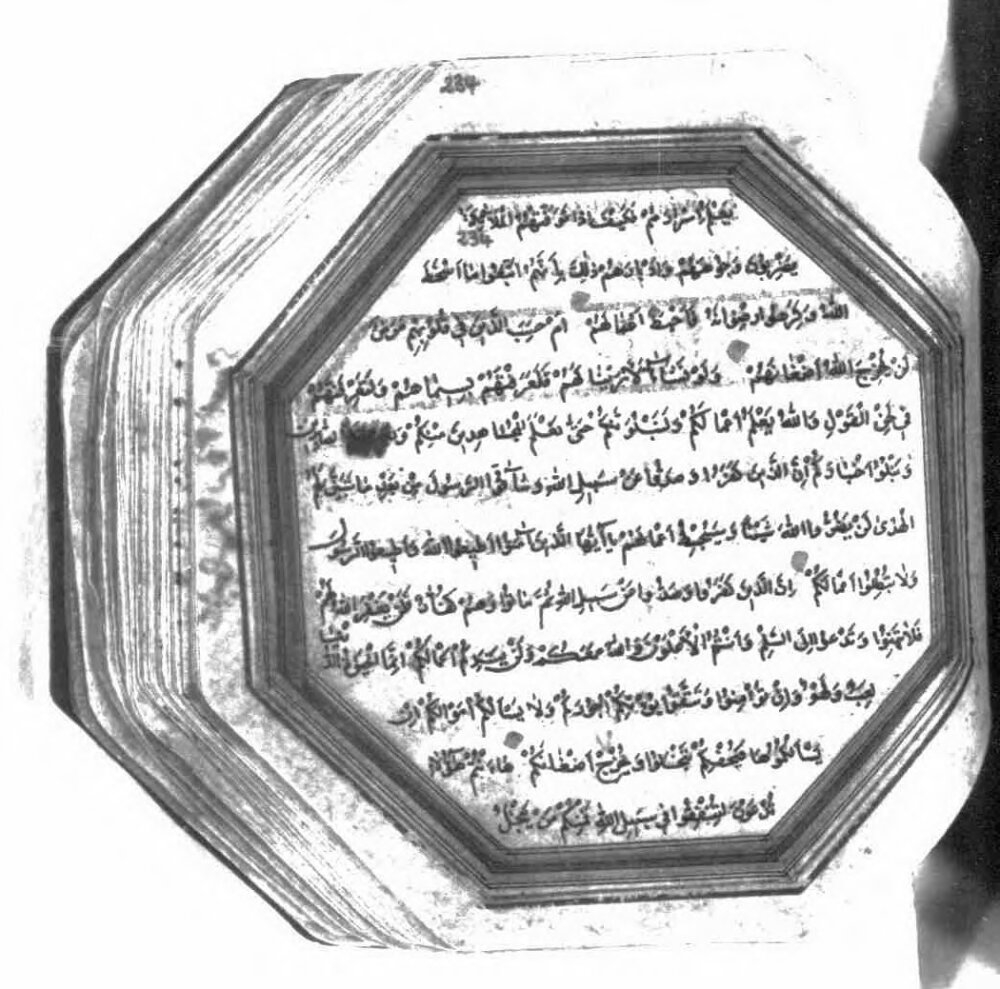 234
يَعْلَمُ أَسْرَارَهُمْ فَكَيْفَ إِذَا تَوَفَّتْهُمُ الْمَلَائِكَةُ
234
يَضْرِبُونَ وُجُوهَهُمْ وَأَدْبَارَهُمْ ذَٰلِكَ بِأَنَّهُمُ اتَّبَعُوا مَا أَسْخَطَ
اللَّهَ وَكَرِهُوا رِضْوَانَهُ فَأَحْبَطَ أَعْمَالَهُمْ أَمْ حَسِبَ الَّذِينَ فِي قُلُوبِهِمْ مَرَضٌ
لَنْ يُخْرِجَ اللَّهُ أَضْغَانَهُمْ وَلَوْ نَشَاءُ لَأَرَيْنَاكَهُمْ فَلَعَرَفْتَهُمْ بِسِيمَاهُمْ وَلَتَعْرِفَنَّهُمْ
فِي لَحْنِ الْقَوْلِ وَاللَّهُ يَعْلَمُ أَعْمَالَكُمْ وَلَنَبْلُوَنَّكُمْ حَتَّى نَعْلَمَ الْمُجَاهِدِينَ مِنْكُمْ وَالصَّابِرِينَ
وَنَبْلُوَا أَخْبَارَكُمْ إِنَّ الَّذِينَ كَفَرُوا وَصَدُّوا عَنْ سَبِيلِ اللَّهِ وَشَاقُّوا الرَّسُولَ مِنْ بَعْدِ مَا تَبَيَّنَ لَهُمُ
الْهُدَىٰ لَنْ يَضُرُّوا اللَّهَ شَيْئًا وَسَيُحْبِطُ أَعْمَالَهُمْ يَا أَيُّهَا الَّذِينَ آمَنُوا أَطِيعُوا اللَّهَ وَأَطِيعُوا الرَّسُولَ
وَلَا تُبْطِلُوا أَعْمَالَكُمْ إِنَّ الَّذِينَ كَفَرُوا وَصَدُّوا عَنْ سَبِيلِ اللَّهِ ثُمَّ مَاتُوا وَهُمْ كُفَّارٌ فَلَنْ يَغْفِرَ اللَّهُ لَهُمْ
فَلَا تَهِنُوا وَتَدْعُوا إِلَى السَّلْمِ وَأَنْتُمُ الْأَعْلَوْنَ وَاللَّهُ مَعَكُمْ وَلَنْ يَتِرَكُمْ أَعْمَالَكُمْ إِنَّمَا الْحَيَاةُ الدُّنْيَا
لَعِبٌ وَلَهْوٌ وَإِنْ تُؤْمِنُوا وَتَتَّقُوا يُؤْتِكُمْ أُجُورَكُمْ وَلَا يَسْأَلْكُمْ أَمْوَالَكُمْ إِنْ
يَسْأَلْكُمُوهَا فَيُحْفِكُمْ تَبْخَلُوا وَيُخْرِجْ أَضْغَانَكُمْ هَا أَنْتُمْ هَٰؤُلَاءِ
تُدْعَوْنَ لِتُنْفِقُوا فِي سَبِيلِ اللَّهِ فَمِنْكُمْ مَنْ يَبْخَلُ